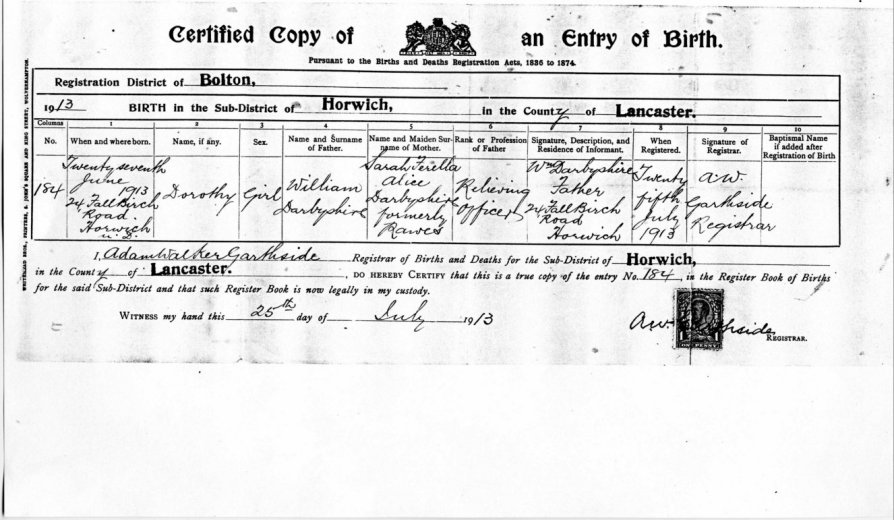 Certified Copy of an Entry of Birth.
Pursuant to the Births and Deaths Registration Acts, 1836 to 1874.
Registration District of Bolton,
1913 BIRTH in the Sub-District of Horwich, in the County of Lancaster.
Columns 1 2 3 4 5 6 7 8 9 10
No. When and where born. Name, if any. Sex. Name and Surname of Father. Name and Maiden Surname of Mother. Rank or Profession of Father Signature, Description, and Residence of Informant. When Registered. Signature of Registrar. Baptismal Name if added after Registration of Birth
184
Twenty seventh
June
1913
24 Fall Birch
Road.
Horwich
Dorothy
Girl
William
Darbyshire
Sarah
Alice
Darbyshire
formerly
Rawes
Relieving
Officer
Wm Darbyshire
Father
24 Fall Birch
Road
Horwich
Twenty
fifth
July
1913
A.W.
Garthside
Registrar
I, Adam Walker Garthside Registrar of Births and Deaths for the Sub-District of Horwich,
in the County of Lancaster. , DO HEREBY CERTIFY that this is a true copy of the entry No. 184, in the Register Book of Births
for the said Sub-District and that such Register Book is now legally in my custody.
WITNESS my hand this 25th day of July 1913
A.W. Garthside
REGISTRAR.
ONE PENNY
WHITEHEAD BROS., PRINTERS, S. JOHN'S SQUARE AND KING STREET, WOLVERHAMPTON.